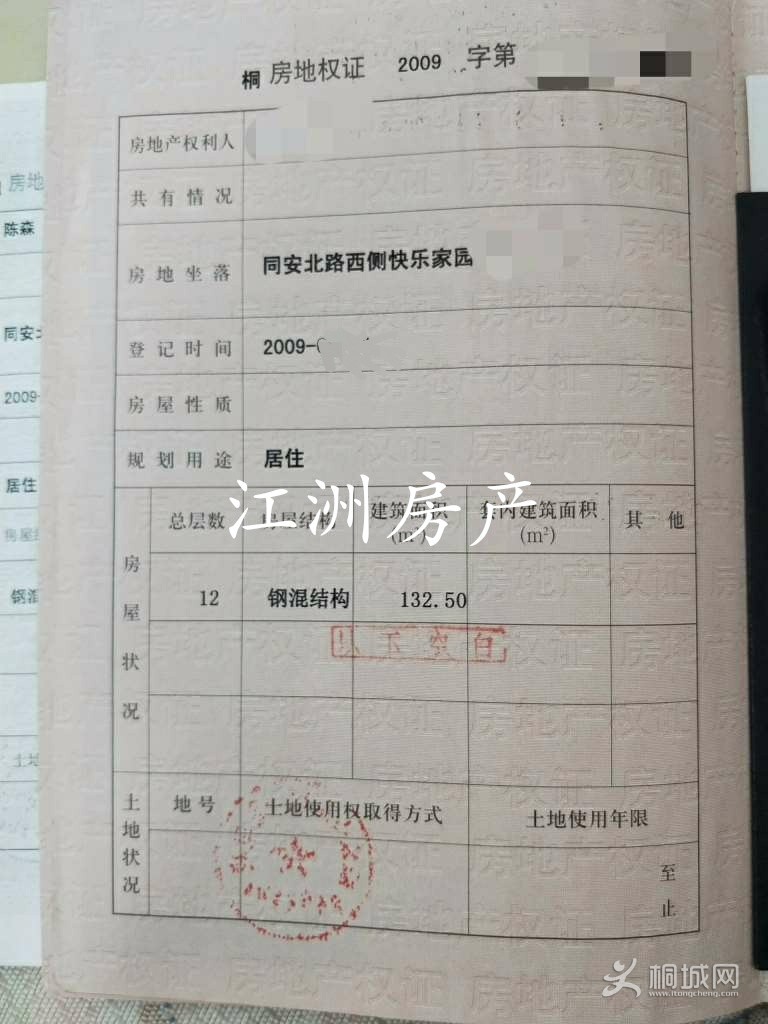 桐 房地权证 2009 字第
房地产权利人
共有情况
房地坐落 同安北路西侧快乐家园
登记时间 2009-
房屋性质
规划用途 居住
房屋状况
总层数 房屋结构 建筑面积(m²) 套内建筑面积(m²) 其他
12 钢混结构 132.50
以下空白
土地状况
地号 土地使用权取得方式 土地使用年限
至
止
江洲房产
房地
陈森
同安
2009-
居住
房屋
钢混
土地
桐城网
www.itongcheng.com